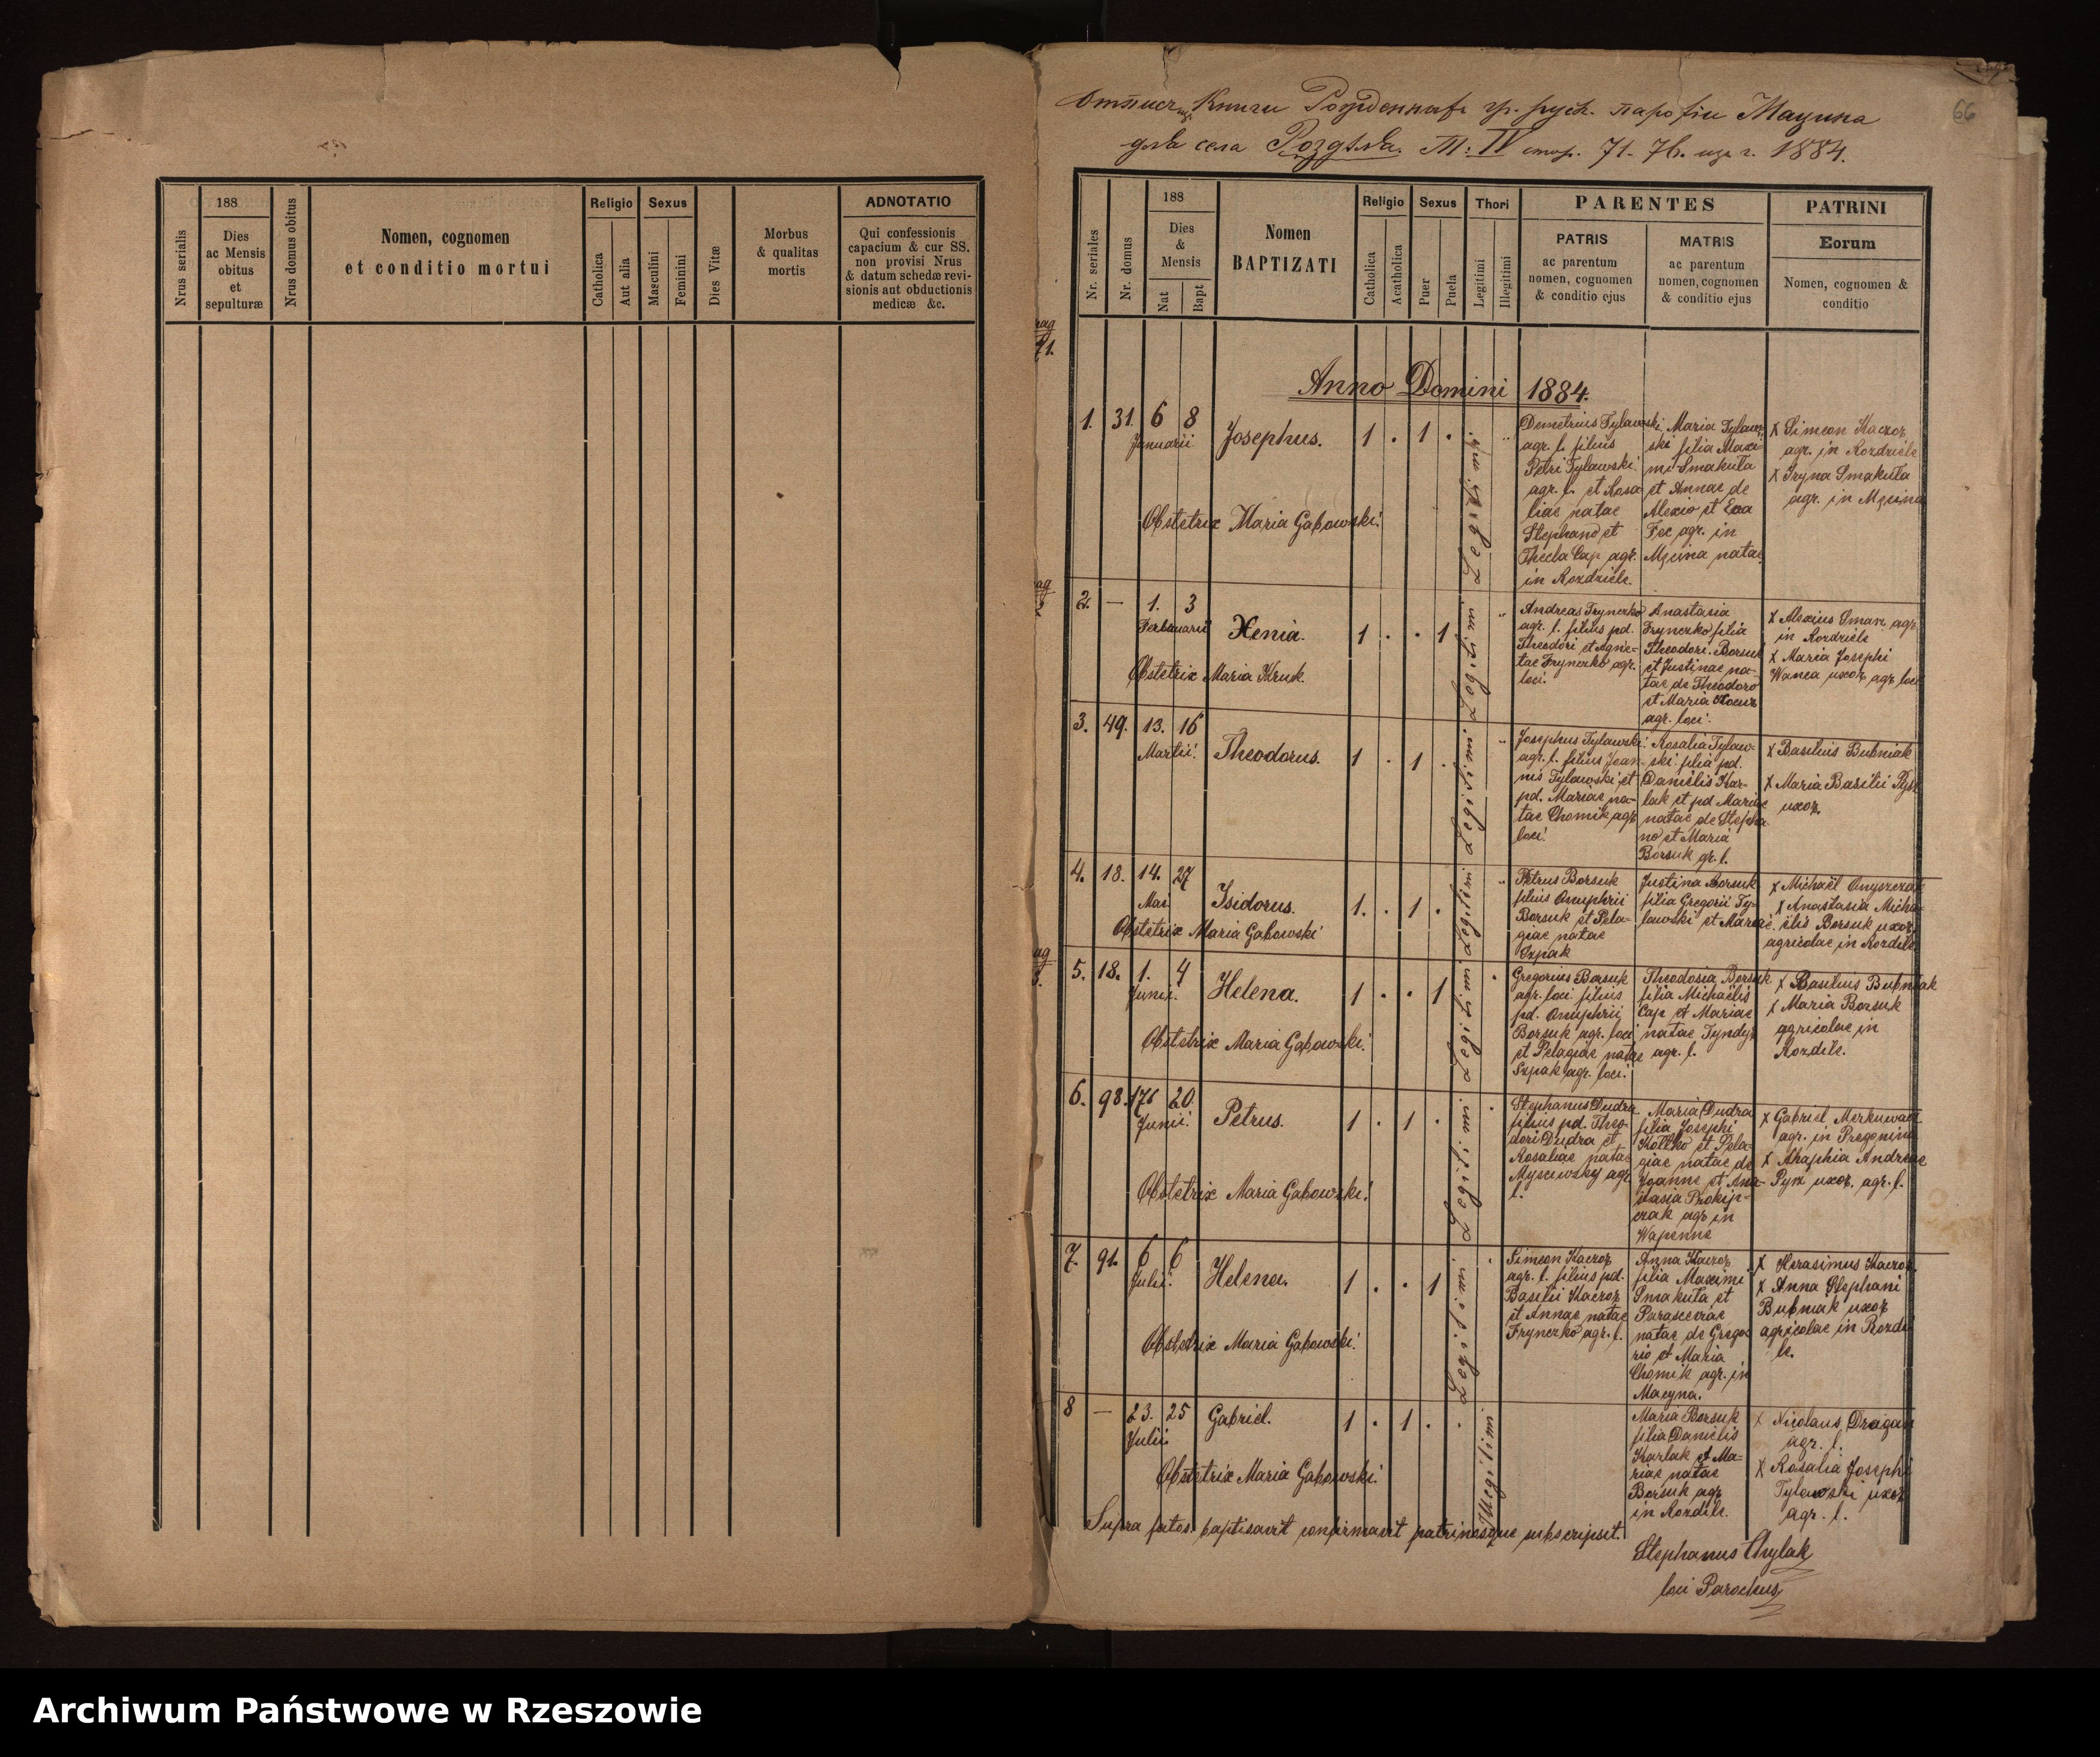 188
Nrus serialis
Dies
ac Mensis
obitus
et
sepulturæ
Nrus domus obitus
Nomen, cognomen
et conditio mortui
Religio
Catholica
Aut alia
Sexus
Masculini
Feminini
Dies Vitæ
Morbus
& qualitas
mortis
ADNOTATIO
Qui confessionis
capacium & cur SS.
non provisi Nrus
& datum schedæ revi-
sionis aut obductionis
medicæ &c.
66
Книги гр. парофіи Мацина
для села Роздѣля. Т: IV стор. 71-76. 1884.
Nr. seriales
Nr. domus
188
Dies
&
Mensis
Nat
Bapt
Nomen
BAPTIZATI
Religio
Catholica
Acatholica
Sexus
Puer
Puela
Thori
Legitimi
Illegitimi
PARENTES
PATRIS
ac parentum
nomen, cognomen
& conditio ejus
MATRIS
ac parentum
nomen, cognomen
& conditio ejus
PATRINI
Eorum
Nomen, cognomen &
conditio
Anno Domini 1884.
1. 31. 6 8
Januarii
Josephus.
1 . 1 .
Legitimi
Obstetrix Maria Gabowski.
Demetrius Tylawski
agr. l. filius
Petri Tylawski
agr. l. et Rosa-
liae natae
Stephano et
Thecla Cap agr.
in Rozdziele.
Maria Tylaw-
ski filia Maxi-
mi Smakuła
et Annae de
Alexio et Eva
Fec agr. in
Męcina natae
X Simeon Kaczor
agr. in Rozdziele
X Iryna Smakuła
agr. in Męcina
2. — 1. 3
Februarii
Xenia.
1 . . 1
Legitimi
Obstetrix Maria Kruk.
Andreas Frynczko
agr. l. filius pd.
Theodori et Agne-
tae Frynczko agr.
loci.
Anastasia
Frynczko filia
Theodori Borsuk
et Justinae na-
tae de Theodoro
et Maria
agr. loci.
X Alexius agr.
in Rozdziele
X Maria Josephi
Wanca uxor agr loci
3. 49. 13. 16
Martii.
Theodorus.
1 . 1 .
Legitimi
Josephus Tylawski
agr. l. filius Joan-
nis Tylawski et
pd. Mariae na-
tae Chomik agr
loci.
Rosalia Tylaw-
ski filia pd.
Danielis Kar-
lak et pd Mariae
natae de Stepha-
no et Maria
Borsuk gr. l.
X Basilius Bubniak
X Maria Basilii
uxor.
4. 18. 14. 27
Mai
Isidorus.
1. . 1 .
Legitimi
Obstetrix Maria Gabowski
Petrus Borsuk
filius Onuphrii
Borsuk et Pela-
giae natae
Szpak
Justina Borsuk
filia Gregorii Ty-
lawski et Mariae
X Michaël Onyszczak
X Anastasia Micha-
ëlis Borsuk uxor
agricolae in Rozdile
5. 18. 1. 4
Junii.
Helena.
1 . . 1
Legitimi
Obstetrix Maria Gabowski.
Gregorius Borsuk
agr. loci filius
pd. Onuphrii
Borsuk agr. loci
et Pelagiae natae
Szpak agr. loci.
Theodosia Borsuk
filia Michaëlis
Cap et Mariae
natae Tyndyk
agr. l.
X Basilius Bubniak
X Maria Borsuk
agricolae in
Rozdile.
6. 98. 20.
Junii.
Petrus.
1 . 1 .
Legitimi
Obstetrix Maria Gabowski.
Stephanus Dudra
filius pd. Theo-
dori Dudra et
Rosaliae natae
agr
l.
Maria Dudra
filia Josephi
et Pela-
giae natae de
Joanne et Ana-
stasia Prokip-
czak agr in
Wapenne
X Gabriel
agr. in Pregonina
X Ahaphia Andreae
Pyrz uxor. agr. l.
7. 91. 6 6
Julii.
Helena.
1 . . 1
Legitimi
Obstetrix Maria Gabowski.
Simeon Kaczor
agr. l. filius pd.
Basilii Kaczor
et Annae natae
Frynczko agr. l.
Anna Kaczor
filia Maximi
Smakuła et
Parasceviae
natae de Grego-
rio et Maria
Chomik agr. in
Macyna.
X Herasimus Kaczor.
X Anna Stephani
Bubniak uxor
agricolae in Rozdi-
le.
8 — 23. 25
Julii
Gabriel.
1 . 1 . .
Illegitimi
Obstetrix Maria Gabowski.
Maria Borsuk
filia Danielis
Karlak et Ma-
riae natae
Borsuk agr
in Rozdile.
X Nicolaus Dragan
agr. l.
X Rosalia Josephi
Tylawski uxor
agr. l.
Supra fatos baptisavit confirmavit patrinosque subscripsit.
Stephanus Chylak
loci Parochus
Archiwum Państwowe w Rzeszowie